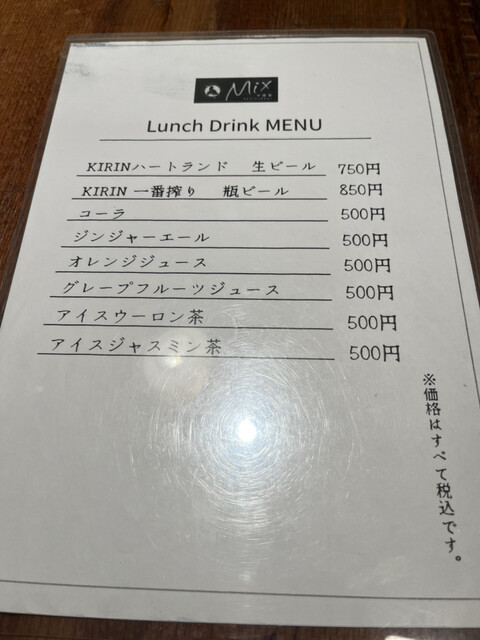 Mix
Lunch Drink MENU
KIRINハートランド 生ビール 750円
KIRIN 一番搾り 瓶ビール 850円
コーラ 500円
ジンジャーエール 500円
オレンジジュース 500円
グレープフルーツジュース 500円
アイスウーロン茶 500円
アイスジャスミン茶 500円
※価格はすべて税込です。